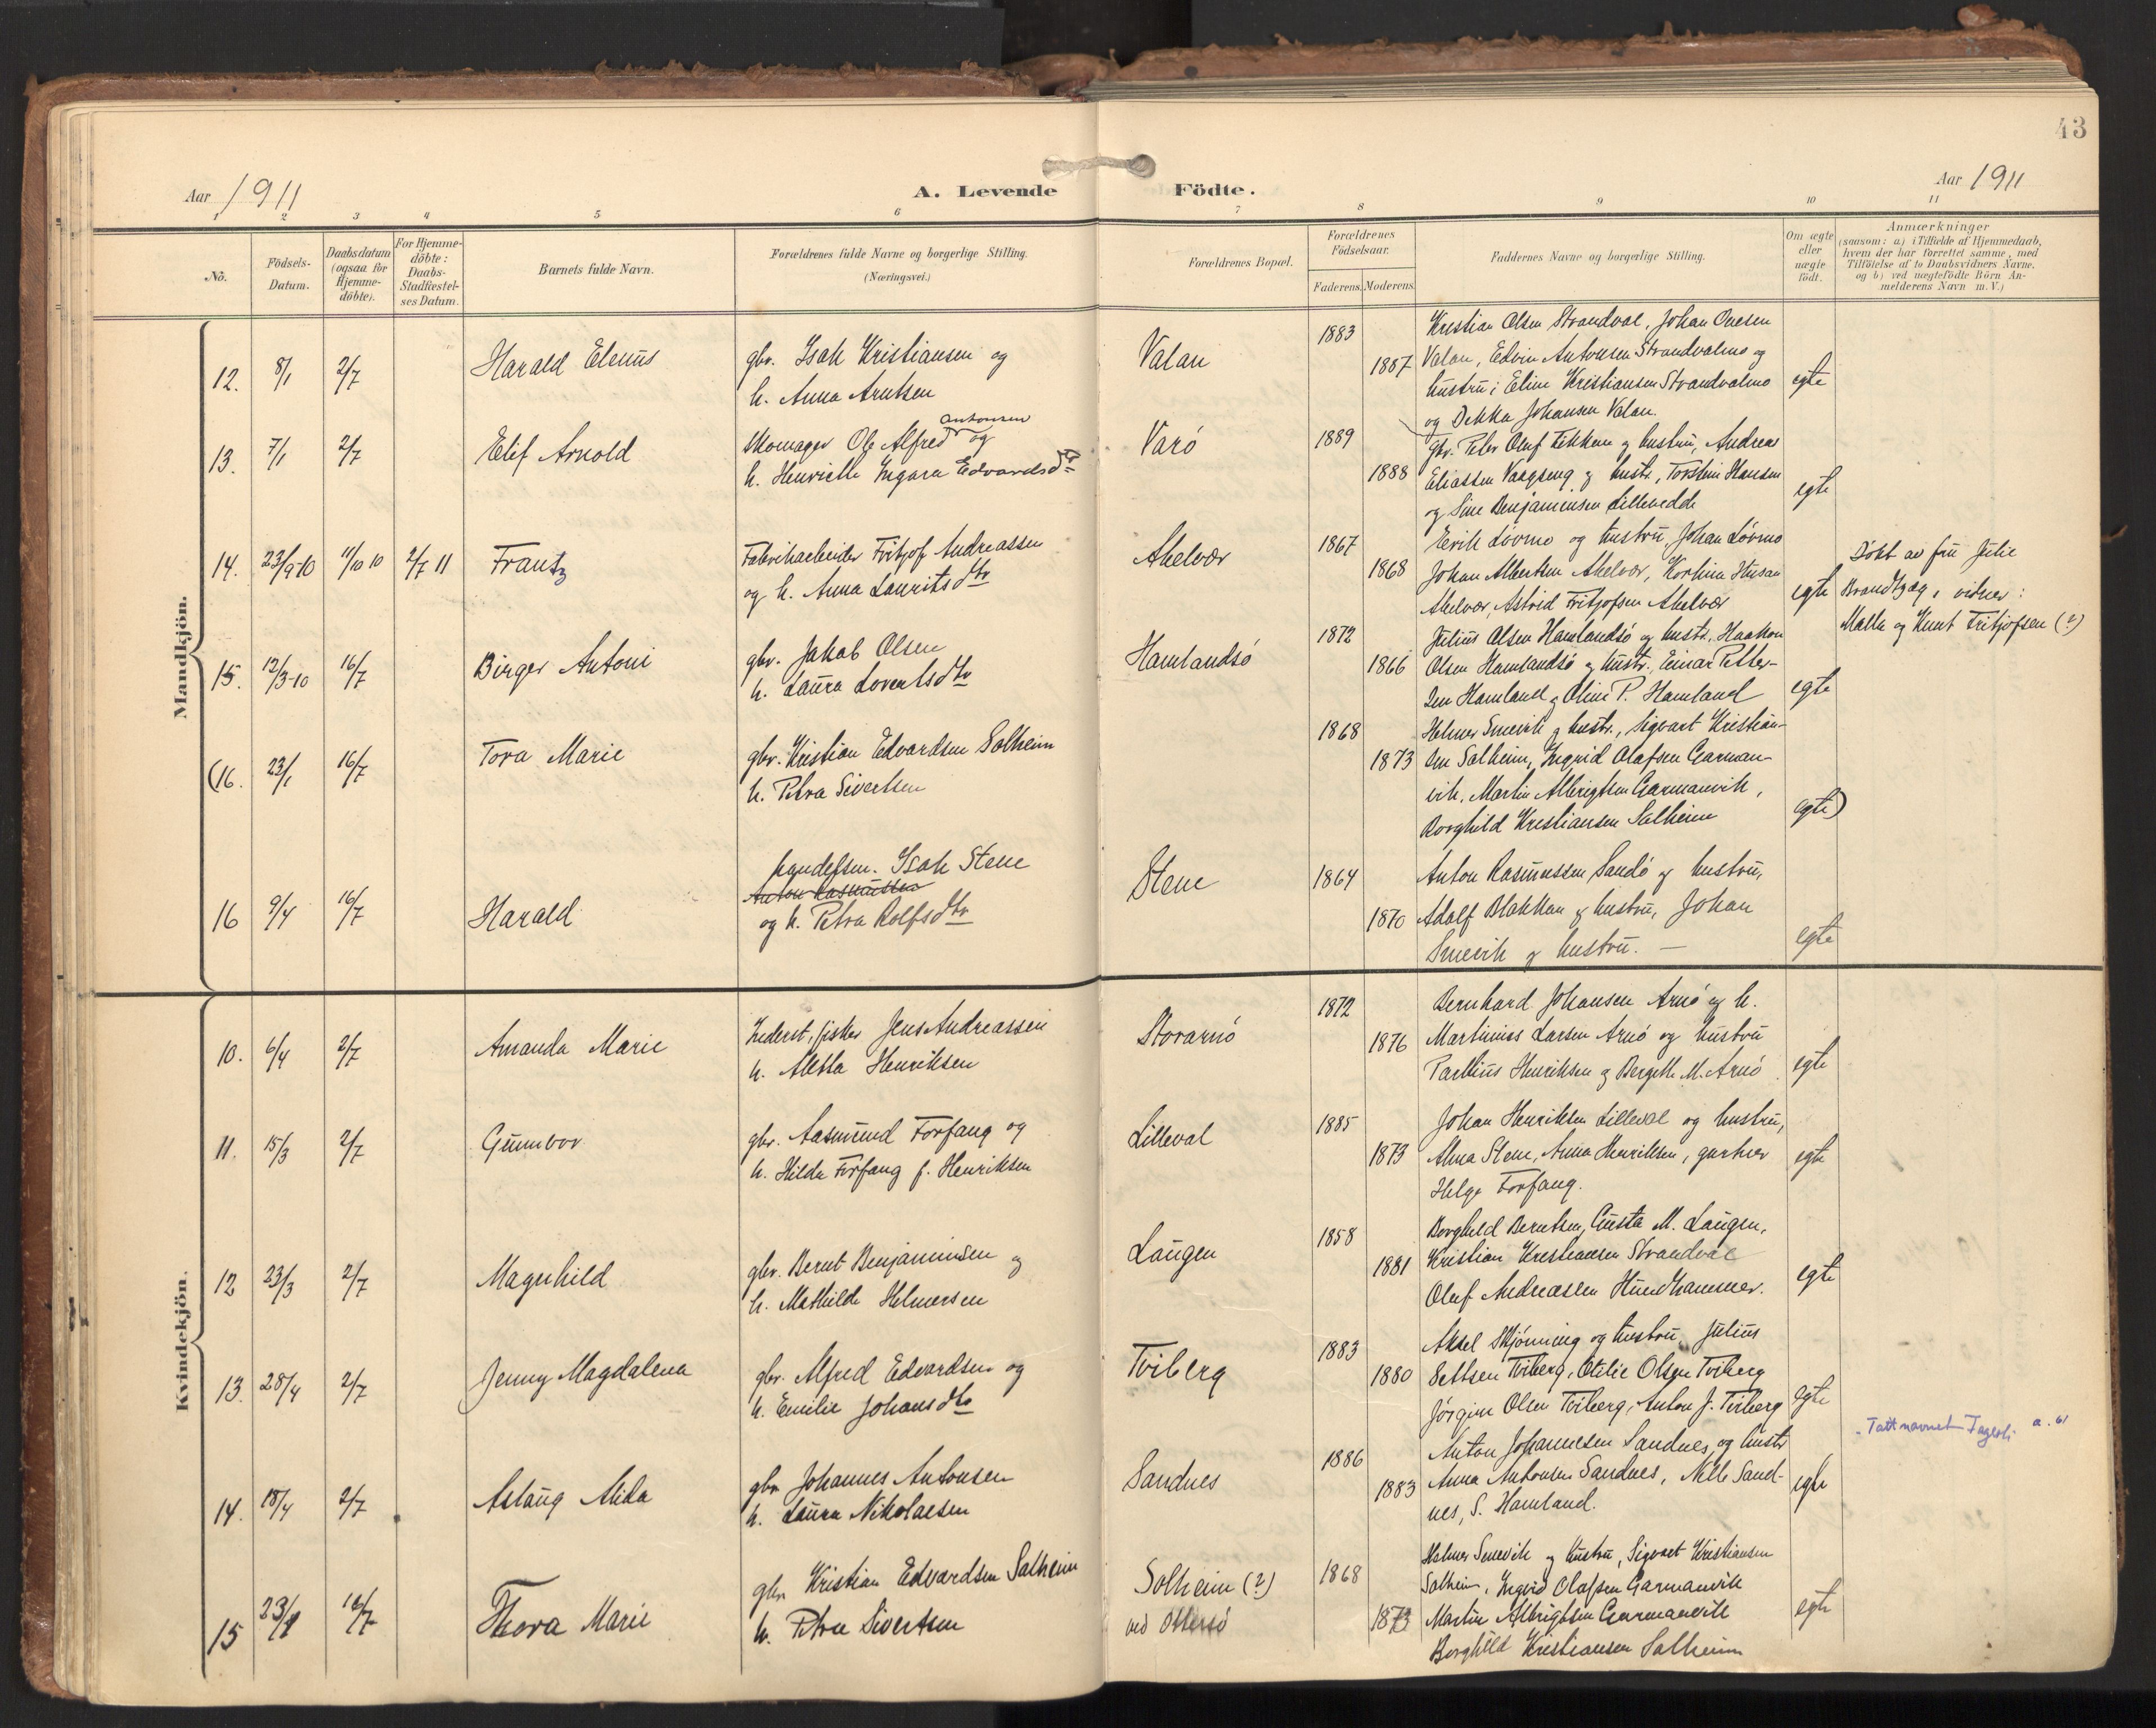 43
Aar 1911
A. Levende Födte.
Aar 1911
1 2 3 4 5 6 7 8 9 10 11
No.
Födsels-
Datum.
Daabsdatum
(ogsaa for
Hjemme-
döbte).
For Hjemme-
döbte:
Daabs-
Stadfæstel-
ses Datum.
Barnets fulde Navn.
Forældrenes fulde Navne og borgerlige Stilling.
(Næringsvei.)
Forældrenes Bopæl.
Forældrenes
Födselsaar.
Faderens. Moderens.
Faddernes Navne og borgerlige Stilling.
Om ægte
eller
uægte
födt.
Anmærkninger
(saasom: a) i Tilfælde af Hjemmedaab,
hvem der har forrettet samme, med
Tilföielse af to Daabsvidners Navne,
og b) ved uægtefödte Börn An-
melderens Navn m. V.)
Mandkjön.
12. 8/1 2/7 Harald Elenus
gbr. Isak Kristiansen og
h. Anna Arntsen
Valan
1883
1887
Kristian Olsen Strandval, Johan
Valan, Edvin Antonsen Strandvalmo og
hustru; Eline Kristiansen Strandvalmo
og Dekka Johansen Valan.
egte
13. 7/1 2/7 Elif Arnold
Antonsen
Skomager Ole Alfred og
h. Henriette Ingara Edvardsdtr
Varö
1889
1888
Gbr. Peter Oluf Fikkan og hustru, Andreas
Eliassen Vaagseng og hustr., Torstein Hansen
og Sine Benjaminsen Lillevedde
egte
14. 23/9-10 11/10 10 2/7 11 Frantz
Fabrikarbeider Fritjof Andreassen
og h. Anna Lauritsdtr
Abelvær
1867
1868
Erik Lövmo og hustru, Johan Lövmo
Johan Albertsen Abelvær, Abelvær, Astrid Fritjofsen Abelvær
egte
Döbt av fru Julie
Brandtzæg, vidner:
Malla og Knut Fritjofsen (?)
15. 12/3-10 16/7 Birger Antoni
gbr. Jakob Olsen
h. Laura Lorentsdtr
Hamlandsö
1872
1866
Julius Olsen Hamlandsö og hustr., Haakon
Olsen Hamlandsö og hustr. Einar Petter-
sen Hamland og Oline P. Hamland
egte
(16. 23/1 16/7 Tora Marie
gbr. Kristian Edvardsen Solheim
h. Petra Sivertsen
1868
1873
Helmer Smevik og hustr., Sigvart Kristian-
sen Salheim, Ingrid Olafsen Garman-
vik, Martin Albrigtsen Garmanvik,
Borghild Kristiansen Salheim
egte)
16 9/4 16/7 Harald
handelsm. Isak Stene
Anton Rasmussen
og h. Petra Rolfsdtr
Stene
1864
1870
Anton Rasmussen Sandö og hustru,
Adolf Blakkan og hustru, Johan
Smevik og hustru. —
egte
Kvindekjön.
10. 6/4 2/7 Amanda Marie
Inderst, fisker Jens Andreassen
h. Aletta Henriksen
Storarnö
1872
1876
Bernhard Johansen Arnö og h.
Martinius Larsen Arnö og hustru
Parelius Henriksen og Bergette M. Arnö
egte
11. 15/3 2/7 Gunnvor
gbr. Aasmund Forfang og
h. Hilda Forfang f. Henriksen
Lilleval
1885
1873
Johan Henriksen Lilleval og hustru,
Alma Stene, Anna Henriksen, gartner
Helge Forfang.
egte
12 23/3 2/7 Magnhild
gbr. Bernt Benjaminsen og
h. Mathilde Helmersen
Laugen
1858
1881
Borghild Berntsen, Gusta M. Laugen,
Kristian Kristiansen Strandval
Oluf Andreassen Hundhammer.
egte
13. 28/4 2/7 Jenny Magdalena
gbr. Alfred Edvardsen og
h. Emilie Johansdtr
Tviberg
1883
1880
Aksel Skjönning og hustru, Julius
Settsen Tviberg, Otilie Olsen Tviberg
Jörgine Olsen Tviberg, Anton J. Tviberg
egte
14. 18/4 2/7 Aslaug Alida
gbr. Johannes Antonsen
h. Laura Nikolaisen
Sandnes
1886
1883
Anton Johannesen Sandnes og hustr
Anna Antonsen Sandnes, Nelle Sand-
nes, S. Hamland.
egte
Tatt navnet Fagerli
15 23/1 16/7 Thora Marie
gbr Kristian Edvardsen Salheim
h. Petra Sivertsen
Solheim (?)
ved Ottersö
1868
1873
Helmer Smevik og hustru, Sigvart Kristiansen
Salheim, Ingrid Olafsen Garmanvik
Martin Albrigtsen Garmanvik
Borghild Kristiansen Salheim
egte